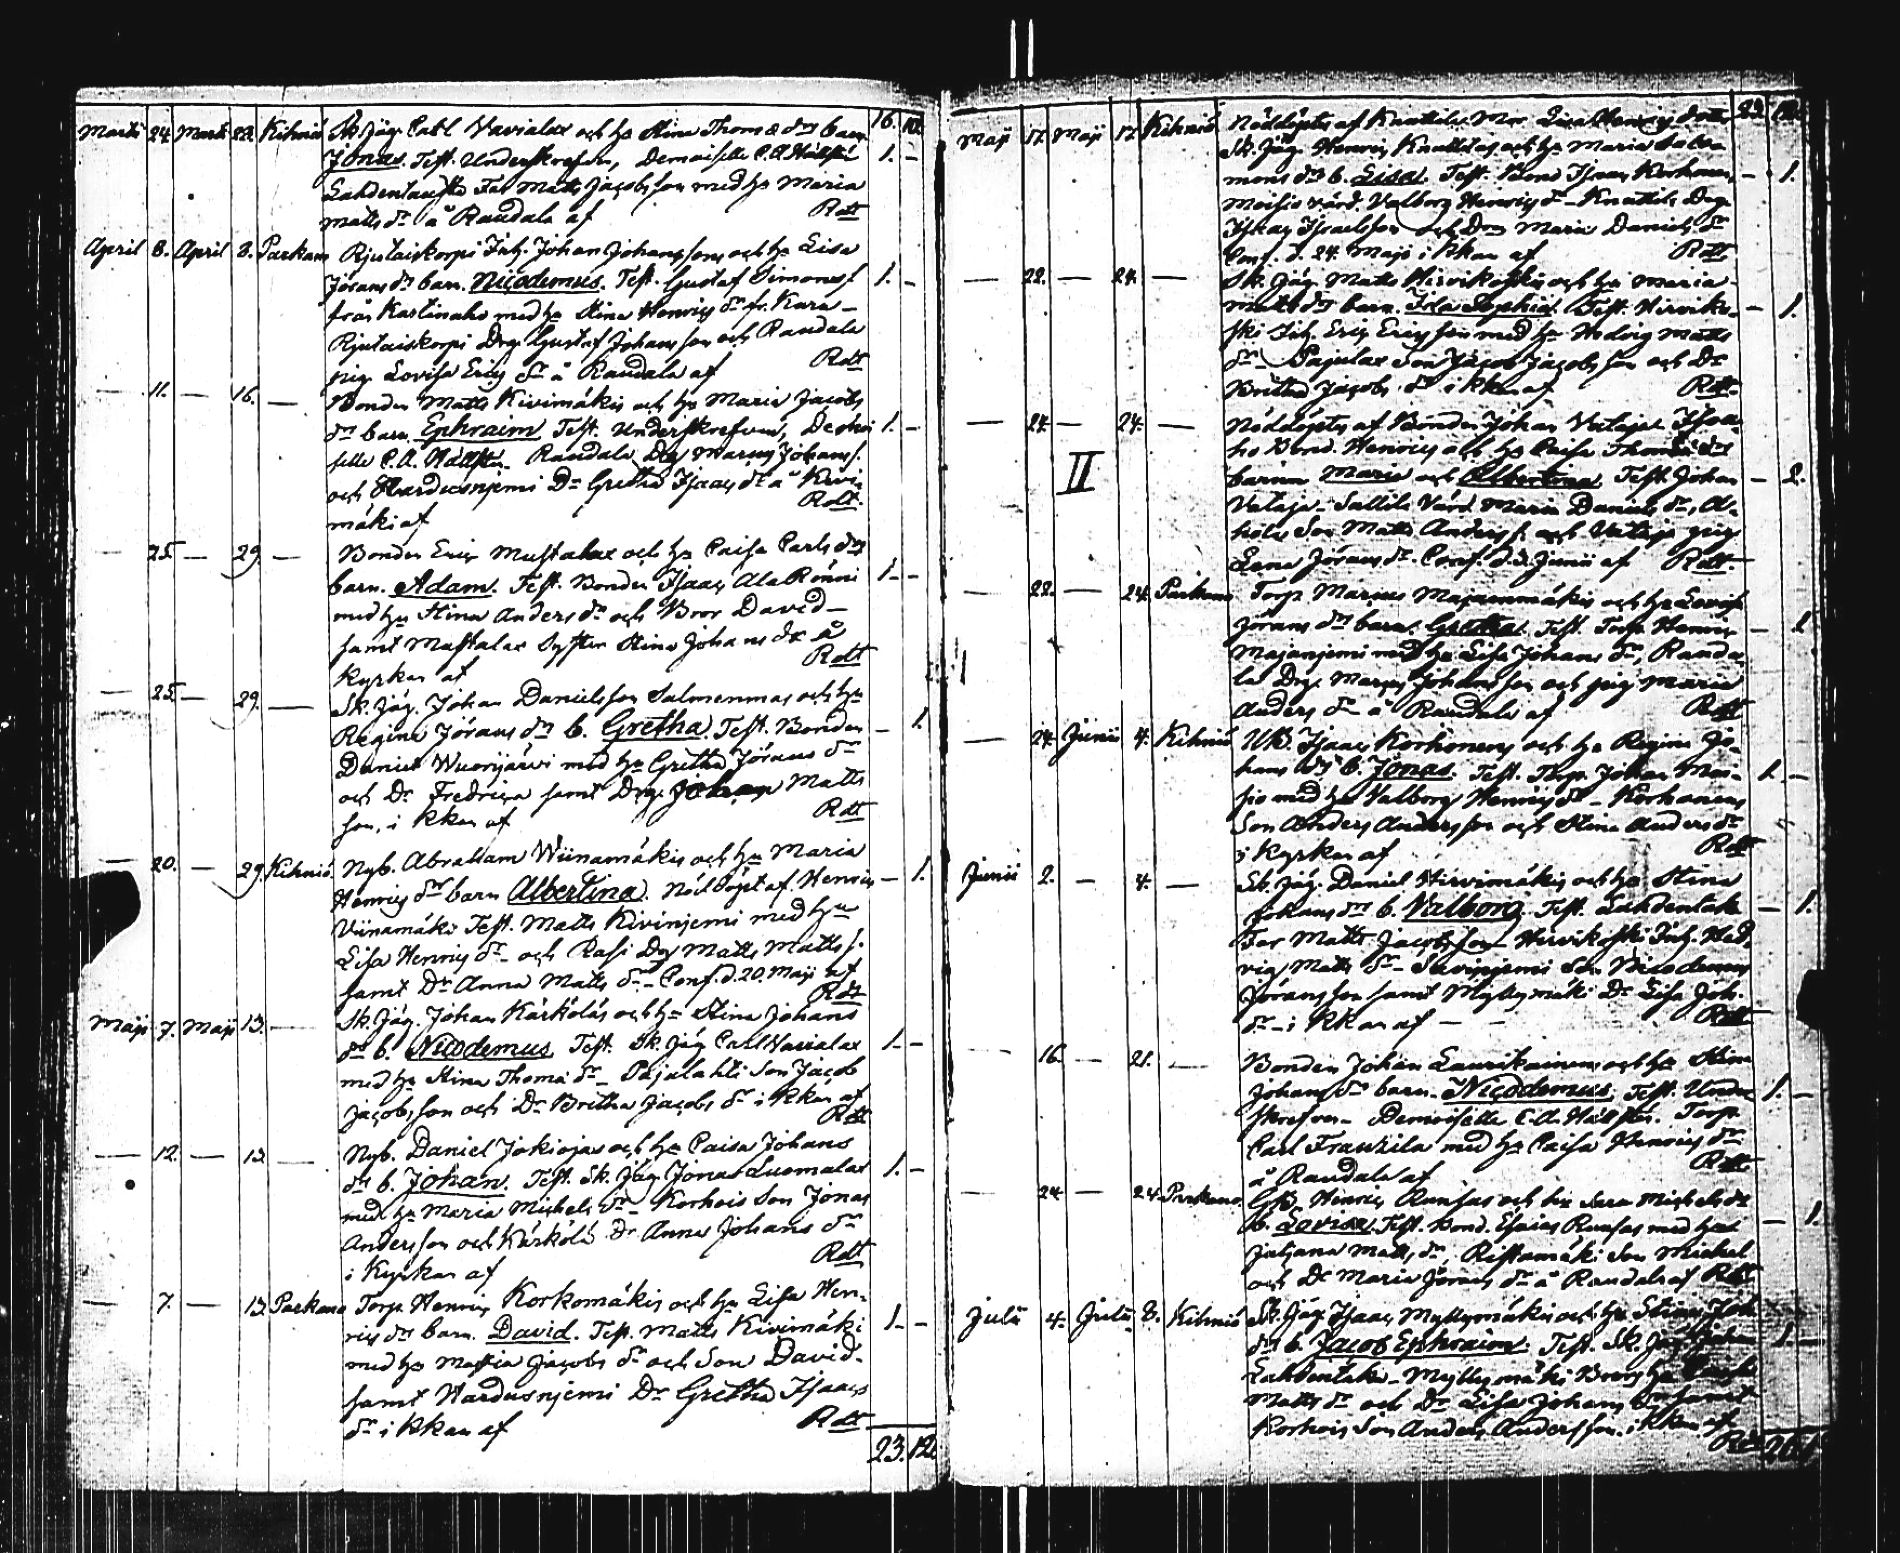 16. 10.
Martii 24. Martii 28. Kihniö Sk. Jäg. Carl Vavialax och hu Stina Thomæ drs barn
Jonas. Test. Underskrefven, Demoiselle C. A. Hällfst. 1. -
Lahdentausta Far Matts Jacobsson med hu Maria
Matts dr å Raudala af Rdtt
April 8. April 8. Parkano Rjutaiskorpi Inh. Johan Johanssons och hu Lisa
Jörans drs barn. Nicodemus. Test. Gustaf Simonss. 1. -
från Karlinaho med hu Stina Henrics dr fr. Kura-
Rjutaiskorpi Drg. Gustaf Johansson och Raudala
pig. Lovisa Erics dr å Raudala af Rdtt
— 11. — 16. — Bonden Matts Kivimäkis och hu Maria Jacobs
drs barn Ephraim Test. Underskrefven, Demoi 1. -
selle C. A. Hällstén. Raudala Drg Marcus Johanss.
och Hardusnjemi Dr Gretha Isaacs dr å Kivi
mäki af Rdtt.
— 25. — 29. — Bonden Eric Mustalax och hu Caisa Carls drs
barn. Adam. Test. Bonden Isaac Ala Rönni 1. -
med hu Stina Anders dr och Bror David —
samt Mustalax Syster Stina Johans dr å
kyrkan af Rdtt
— 25. — 29. — Sk. Jäg. Johan Danielsson Salmenmas och hu
Regina Jörans drs b. Gretha. Test. Bonden - 1.
Daniel Wuorijärvi med hu Gretha Jörans dr
och Dr Fredrica samt Drg. Johan Matts
son, i kkan af Rdtt
— 20. — 29. Kihniö. Nyb. Abraham Wiinamäkis och hu Maria
Henrics drs barn Albertina. Nöddöpt af Henric - 1.
Viinamäki Test. Matts Kivinjemi med hu
Lisa Henrics dr - och Rasi Drg Matts Matts s.
samt Dr Anna Matts dr - Conf. d. 20. Maji af
Rdtt
Maji 7. Maji 13. — Sk. Jäg. Johan Kärköläs och hu Stina Johans
drs b. Nicodemus Test. Sk. Jäg Carl Vavialax 1. -
med hu Stina Thomæ dr - Pajalahti Son Jacob
Jacobsson och Dr Britha Jacobs dr i kkan af
Rdtt
— 12. — 13. — Nyb. Daniel Jokiojas och hu Caisa Johans
drs b. Johan. Test. Sk. Jäg. Jonas Luomalax 1. -
med hu Maria Michels dr - Korhois Son Jonas
Andersson och Kärkölä Dr Anna Johans dr
i Kyrkan af Rdtt
— 7. — 13. Parkano Torp. Henric Korkomäkis och hu Lisa Hen-
rics drs barn. David. Test. Matts Kivimäki 1. -
med hu Maria Jacobs dr och Son David.
samt Wardusnjemi Dr Gretha Isaacs
dr i kkan af Rdtt
23. 12.
23. 12.
Maji 17. Maji 17. Kihniö Nöddöptes af Knuttila Mor Lisa Henrics dotter
Sk. Jäg. Henric Knuttilas och hu Maria Salo
mons drs b. Lisa. Test. Bond Isaac Korhonen, - 1.
Moisio värd. Valborg Henrics dr - Knuttila Drg.
Isaac Israelsson och Dr Maria Daniels dr
Conf. d. 24. Maji i kkan af Rdtt
— 22. — 24. — Sk. Jäg. Matts Hirvikoskis och hu Maria
Matts drs barn. Ida Sophia. Test. Hirviko- - 1.
ski Inh. Eric Ericsson med hu Hedvig Matts
dr - Pajulax Son Jacob Jacobsson och Dr
Britha Jacobs dr i kkan af Rdtt.
— 24. — 24. — Nöddöptes af Bonden Johan Vataja
ho Bond. Henrics och hu Caisa Thomæ drs
II barnen Maria och Albertina. Test. Johan - 2.
Vataja - Sallila Värd. Maria Daniels dr, A-
hola Son Matts Anders s. och Vataja pig
Lena Jörans dr. Conf. d. 3. Junii af Rdtt.
— 22. — 24. Parkano Torp. Marcus Majanmäkis och hu Lovisa
Jörans drs barn. Gretha. Test. Torp. Henric - 1
Majanjemi med hu Lisa Johans dr, Rauda-
la Drg. Marcus Johansson och pig. Maria
Anders dr å Raudala af Rdtt
— 24. Junii 4. Kihniö Isaac Korhonens och hu Regina Jo-
hans drs b. Jonas. Test. Torp. Johan Moi- 1. -
sio med hu Valborg Henrics dr - Korhonens
Son Anders Andersson och Stina Anders dr
i Kyrkan af Rdtt
Junii 2. — 4. — Sk. Jäg. Daniel Hirvimäkis och hu Stina
Johans drs b. Valborg. Test. Lahdentak - 1.
Far Matts Jacobsson - Hirvikoski Inh. Hed-
vig Matts dr - Savinjemi Son Nicodemus
Jöransson samt Myllymäki Dr Lisa Joh.
dr - i kkan af — Rdtt
— 16. — 21. — Bonden Johan Laurikainens och hu Stina
Johans drs barn. Nicodemus. Test. Under 1. -
skrefven - Demoiselle C. A. Hällstén. Torp.
Carl Franzila med hu Caisa Henrics dr
å Raudala af Rdtt
— 24. — 24. Parkano. Henric Runsas och hu Sara Michels dr
b. Lovisa. Test. Bond. Esaias Runsas med hu - 1.
Juljana Matts dr, Ristamäki Son Michel
och Dr Maria Jörans dr å Raudala af Rdtt
Julii 4. Julii 8. Kihniö Sk. Jäg. Isaac Myllymäkis och hu Stina Joh.
drs b. Jacob Ephraim. Test. Sk. Jäg. Johan 1. -
Lahdentaka - Myllymäki Bror hu
Matts dr och Dr Lisa Johans dr samt
Korhois Son Anders Andersson. i kkan af
Rdtt